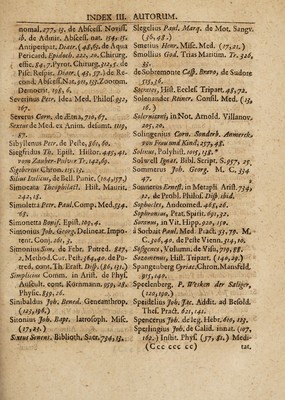 INDEX III. AUTORUM.
nomal, 277, 13. de Abscess. Noviss.
ib. de Admir. Abscess. nat. 154, 15.
Antiperipat. Diatr. (48, 63. de Aqua
Pericard. Epithob. 222, 20. Chirurg.
effic. 84, 7. Pyrot. Chirurg. 312, 5. de
Pisc. Respir. Diatr. (43, 57.) de Re-
cond. Abscess. Nat. 911, 155. Zootom.
Democrit. 198, 6.
Severinus Petr. Idea Med. Philos. 932,
167.
Severus Corn. de Ætna, 710, 67.
Sextus de Med. ex Anim. desumt. 1119,
87.
Sibyllenus Petr. de Peste, 869, 60.
Siegfridus Th. Epist. Hilior. 445, 41.
vom Zauber-Pulver Tr. 142, 69.
Sigebertus Chron. 115, 13.
Silius Italicus, de Bell. Punic. (104, 157.)
Simocata Theophilact. Hist. Maurit.
242, 15.
Simoneta Petr. Paul. Comp. Med. 514,
68.
Simonetta Bonif. Epist. 109, 4.
Simonius Joh. Georg. Delineat. Impo-
tent. Conj. 261, 3.
Simonius Sim. de Febr. Putred. 827,
2. Method. Cur. Pest. 564, 40. de Pu-
tred. cont. Th. Erast. Disp. (86, 131.)
Simplicius Comm. in Arist. de Phys.
Auscult. cont. Kornmann. 959, 28.
Physic. 859, 26.
Sinibaldus Joh. Bened. Geneanthrop.
(123, 196.)
Sitonius Joh. Bapt. Iatrosoph. Misc.
(17, 25.)
Sixtus Senens. Biblioth. Sacr. 734, 13.
Slegelius Paul. Marq. de Mot. Sangv.
(36, 48.)
Smetius Henr. Misc. Med. (17, 21.)
Smollius God. Trias Maritim. Tr. 326,
35.
de Sobremonte Casp. Bravo, de Sudore
515, 56.
Socrates, Hist. Eccles. Tripart. 48, 72.
Solenander Reiner. Consil. Med. (13,
16.)
Solermianus, in Not. Arnold. Villanov.
205, 20.
Solingenius Corn. Sonderb. Anmerck.
von Frau und Kind, 257, 48.
Solinus, Polyhist. 1015, 138.
Solwell Ignat. Bibl. Script. S. 957, 25.
Sommerus Joh. Georg. M. C. 334,
47.
Sonnerus Ernest. in Metaph. Arist. 734,
32. de Probl. Philos. Disp. ibid.
Sophocles, Andromed. 468, 26.
Sophronius, Prat. Spirit. 691, 32.
Soranus, in Vit. Hipp. 920, 150.
à Sorbait Paul. Med. Pract. 53, 79. M.
C. 306, 40. de Peste Vienn. 314, 10.
Sosigenes, Volum. de Visu, 719, 88.
Sozomenus, Hist. Tripart. (140, 29.)
Spangenburg Cyriac. Chron. Mansfeld.
905, 149.
Speelenberg, P. Wercken der Saliger,
(122, 190.)
Speidelius Joh. Jac. Addit. ad Besold.
Thes. Pract. 621, 141.
Spencerus Joh. de leg. Hebr. 610, 123.
Sperlingius Joh. de Calid. innat. (107,
162.) Instit. Phys. (57, 81.) Medi-
(Ccc ccc cc) tat.